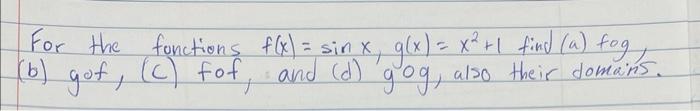 For the functions f(x) = sin x, g(x) = x²+1 find (a) fog,
(b) gof, (C) fof, and (d) gog, also their domains.